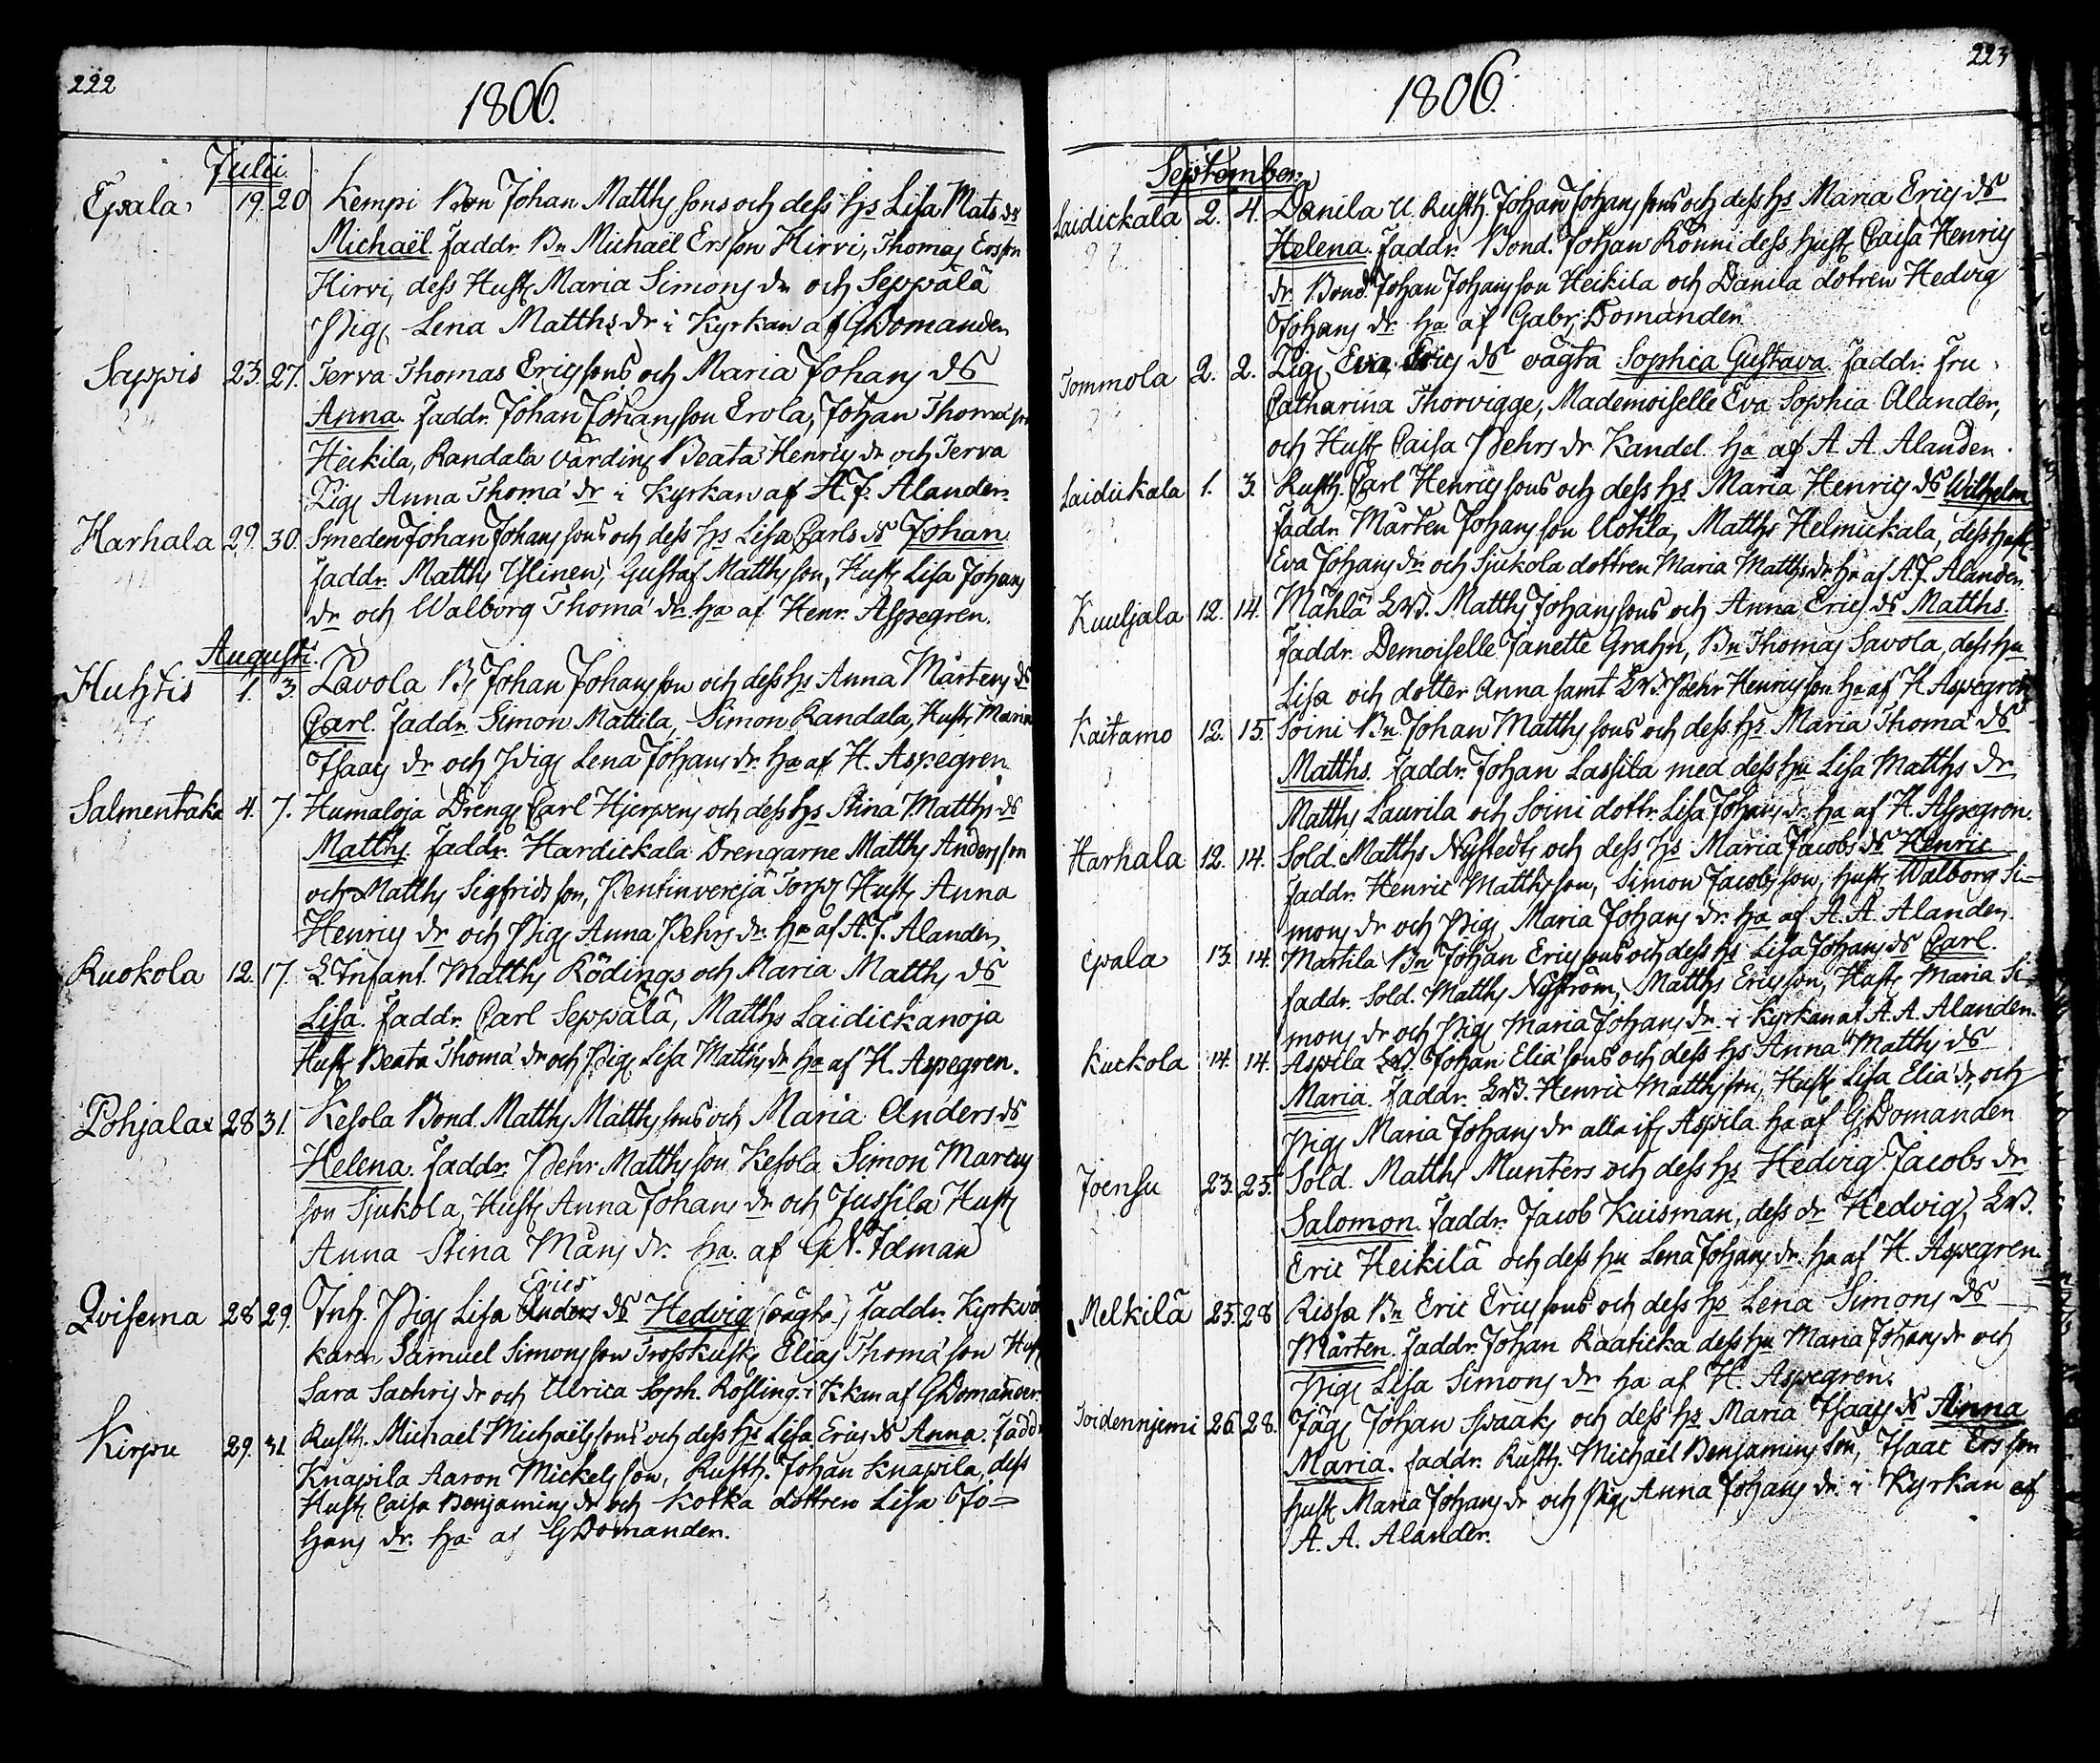 222
1806.
Julii
Epala 19. 20 Kempi Bon Johan Matthssons och dess hs Lisa Mats ds
Michaël. faddr. Bn Michaël Ersson Hirvi, Thomas Ersson
Hirvi, dess Hust Maria Simons dr och Seppälä
Pig. Lena Matths dr i Kyrkan af GDomander
Sappis 23. 27. Terva Thomas Ericssons och Maria Johans ds
Anna. faddr. Johan Johansson Erola, Johan Thomasson
Heikila, Randala värdin Beata Henrics dr och Terva
Pig. Anna Thoma dr i Kyrkan af A.J. Alander.
Harhala 29. 30. Smeden Johan Johanssons och dess hs Lisa Carls ds Johan
faddr. Matths Ylinen, Gustaf Matthsson, Hust Lisa Johans
dr och Walborg Thoma dr ha af Henr. Aspegren.
Augusti.
Huhtis 1. 3. Lavola B. Johan Johansson och dess hs Anna Mårtens ds
Carl. faddr. Simon Mattila, Simon Randala, Hust Maria
Isaacs dr och Pig. Lena Johans dr. ha af H. Aspegren.
Salmentaka 4. 7. Humaloja Dreng Carl Hjerpens och dess hs Stina Matths ds
Matths. faddr. Hardickala Drengarne Matths Andersson
och Matths Sigfridsson, Pentinvereja Torp. Hust Anna
Henrics dr och Pig. Anna Pehrs dr. ha af A.J. Alander.
Ruokola 12. 17. L. Infant. Matths Rödings och Maria Matths ds
Lisa. faddr. Carl Seppälä, Matths Laidickanoja
Hust Beata Thoma dr och Pig. Lisa Matths dr ha af H. Aspegren.
Pohjala 28 31. Kesola Bond. Matths Matthssons och Maria Anders ds
Helena. faddr. Pehr Matthsson Kesola Simon Marcus
son Sjukola, Hust Anna Johans dr och Jussila Hust
Anna Stina Måns dr. ha. af GN. Idman
Erics
Qvisema 28 29. Inh. Pig. Lisa Anders ds Hedvig (oägta) faddr. Kyrkvä
karen Samuel Simonsson Trosskusk Elias Thomason Hust
Sara Sachris dr och Ulrica Soph. Rosling i Kkan af GDomander.
Kirpu 29. 31. Rusth. Michael Michaëlssons och dess hs Lisa Erics ds Anna. Faddr
Knapila Aaron Mickelsson, Rusth. Johan Knapila, dess
Hust Caisa Benjamins dr och Kotka dottren Lisa Jo-
hans dr. ha af GDomander.
223
1806.
September.
Laidickala 2. 4. Danila U. Rusth. Johan Johanssons och dess hs Maria Erics ds
Helena. faddr. Bond. Johan Rönni dess hust Caisa Henrics
dr. Bond. Johan Johansson Heikila och Danila dotren Hedvig
Johans dr. ha af Gabr. Domander.
Tommola 2. 2. Pig. Eva Erics ds oägta Sophia Gustava. faddr. Fru
Catharina Thorvigge, Mademoiselle Eva Sophia Alander,
och Hust Caisa Pehrs dr Kandel. ha af A A. Alander.
Laidickala 1. 3. Rusth. Carl Henricssons och dess hs Maria Henrics ds Wilhelm
faddr. Mårten Johansson Uotila, Matths Helmickala, dess hust
Eva Johans dr och Sjukola dottren Maria Matths dr. ha af A.J. Alander.
Kuuljala 12. 14. Mähla LvB. Matths Johanssons och Anna Erics ds Matths.
faddr. Demoiselle Janette Grahn, Bn Thomas Savola, dess hu
Lisa och dotter Anna samt LvB. Pehr Henricsson ha af H. Aspegren
Kaitamo 12. 15. Soini Bn. Johan Matthssons och dess hs Maria Thoma ds
Matths. faddr. Johan Lassila med dess hu Lisa Matths dr
Matths Laurila och Soini dottr. Lisa Johans dr. ha af H. Aspegren.
Harhala 12. 14. Sold. Matths Nystedts och dess hs Maria Jacobs ds Henric
faddr. Henric Matthsson, Simon Jacobsson, hust Walborg Si-
mons dr och Pig. Maria Johans dr. ha af A. A. Alander.
Epala 13. 14. Martila Bn Johan Ericssons och dess hs Lisa Johans ds Carl.
faddr. Sold. Matths Nyström, Matths Ericsson, Hust Maria Si-
mons dr och Pig. Maria Johans dr. i Kyrkan af A. A. Alander.
Kuckola 14. 14. Aspila LvB. Johan Eliasons och dess hs Anna Matths ds
Maria. faddr. LvB. Henric Matthsson, Hust Lisa Elia dr, och
Pig. Maria Johans dr alla ifr Aspila ha af GDomander
Joensu 23. 25. Sold. Matths Munters och dess hs Hedvig Jacobs dr
Salomon. faddr. Jacob Kuisman, dess dr Hedvig, LvB.
Eric Heikilä och dess hu Lena Johans dr. ha af H. Aspegren.
Melkilä 25. 28 Rissa Bn Eric Ericssons och dess hs Lena Simons ds
Mårten. faddr. Johan Raaticka dess hu Maria Johans dr och
Pig. Lisa Simons dr ha af H. Aspegren.
Toidennjemi 26. 28. Jäg. Johan Spaaks och dess hs Maria Isaacs ds Anna
Maria. faddr. Rusth. Michaël Benjaminsson, Isaac Ersson
hust Maria Johans dr och Pig. Anna Johans dr. i Kyrkan af
A. A. Alander.